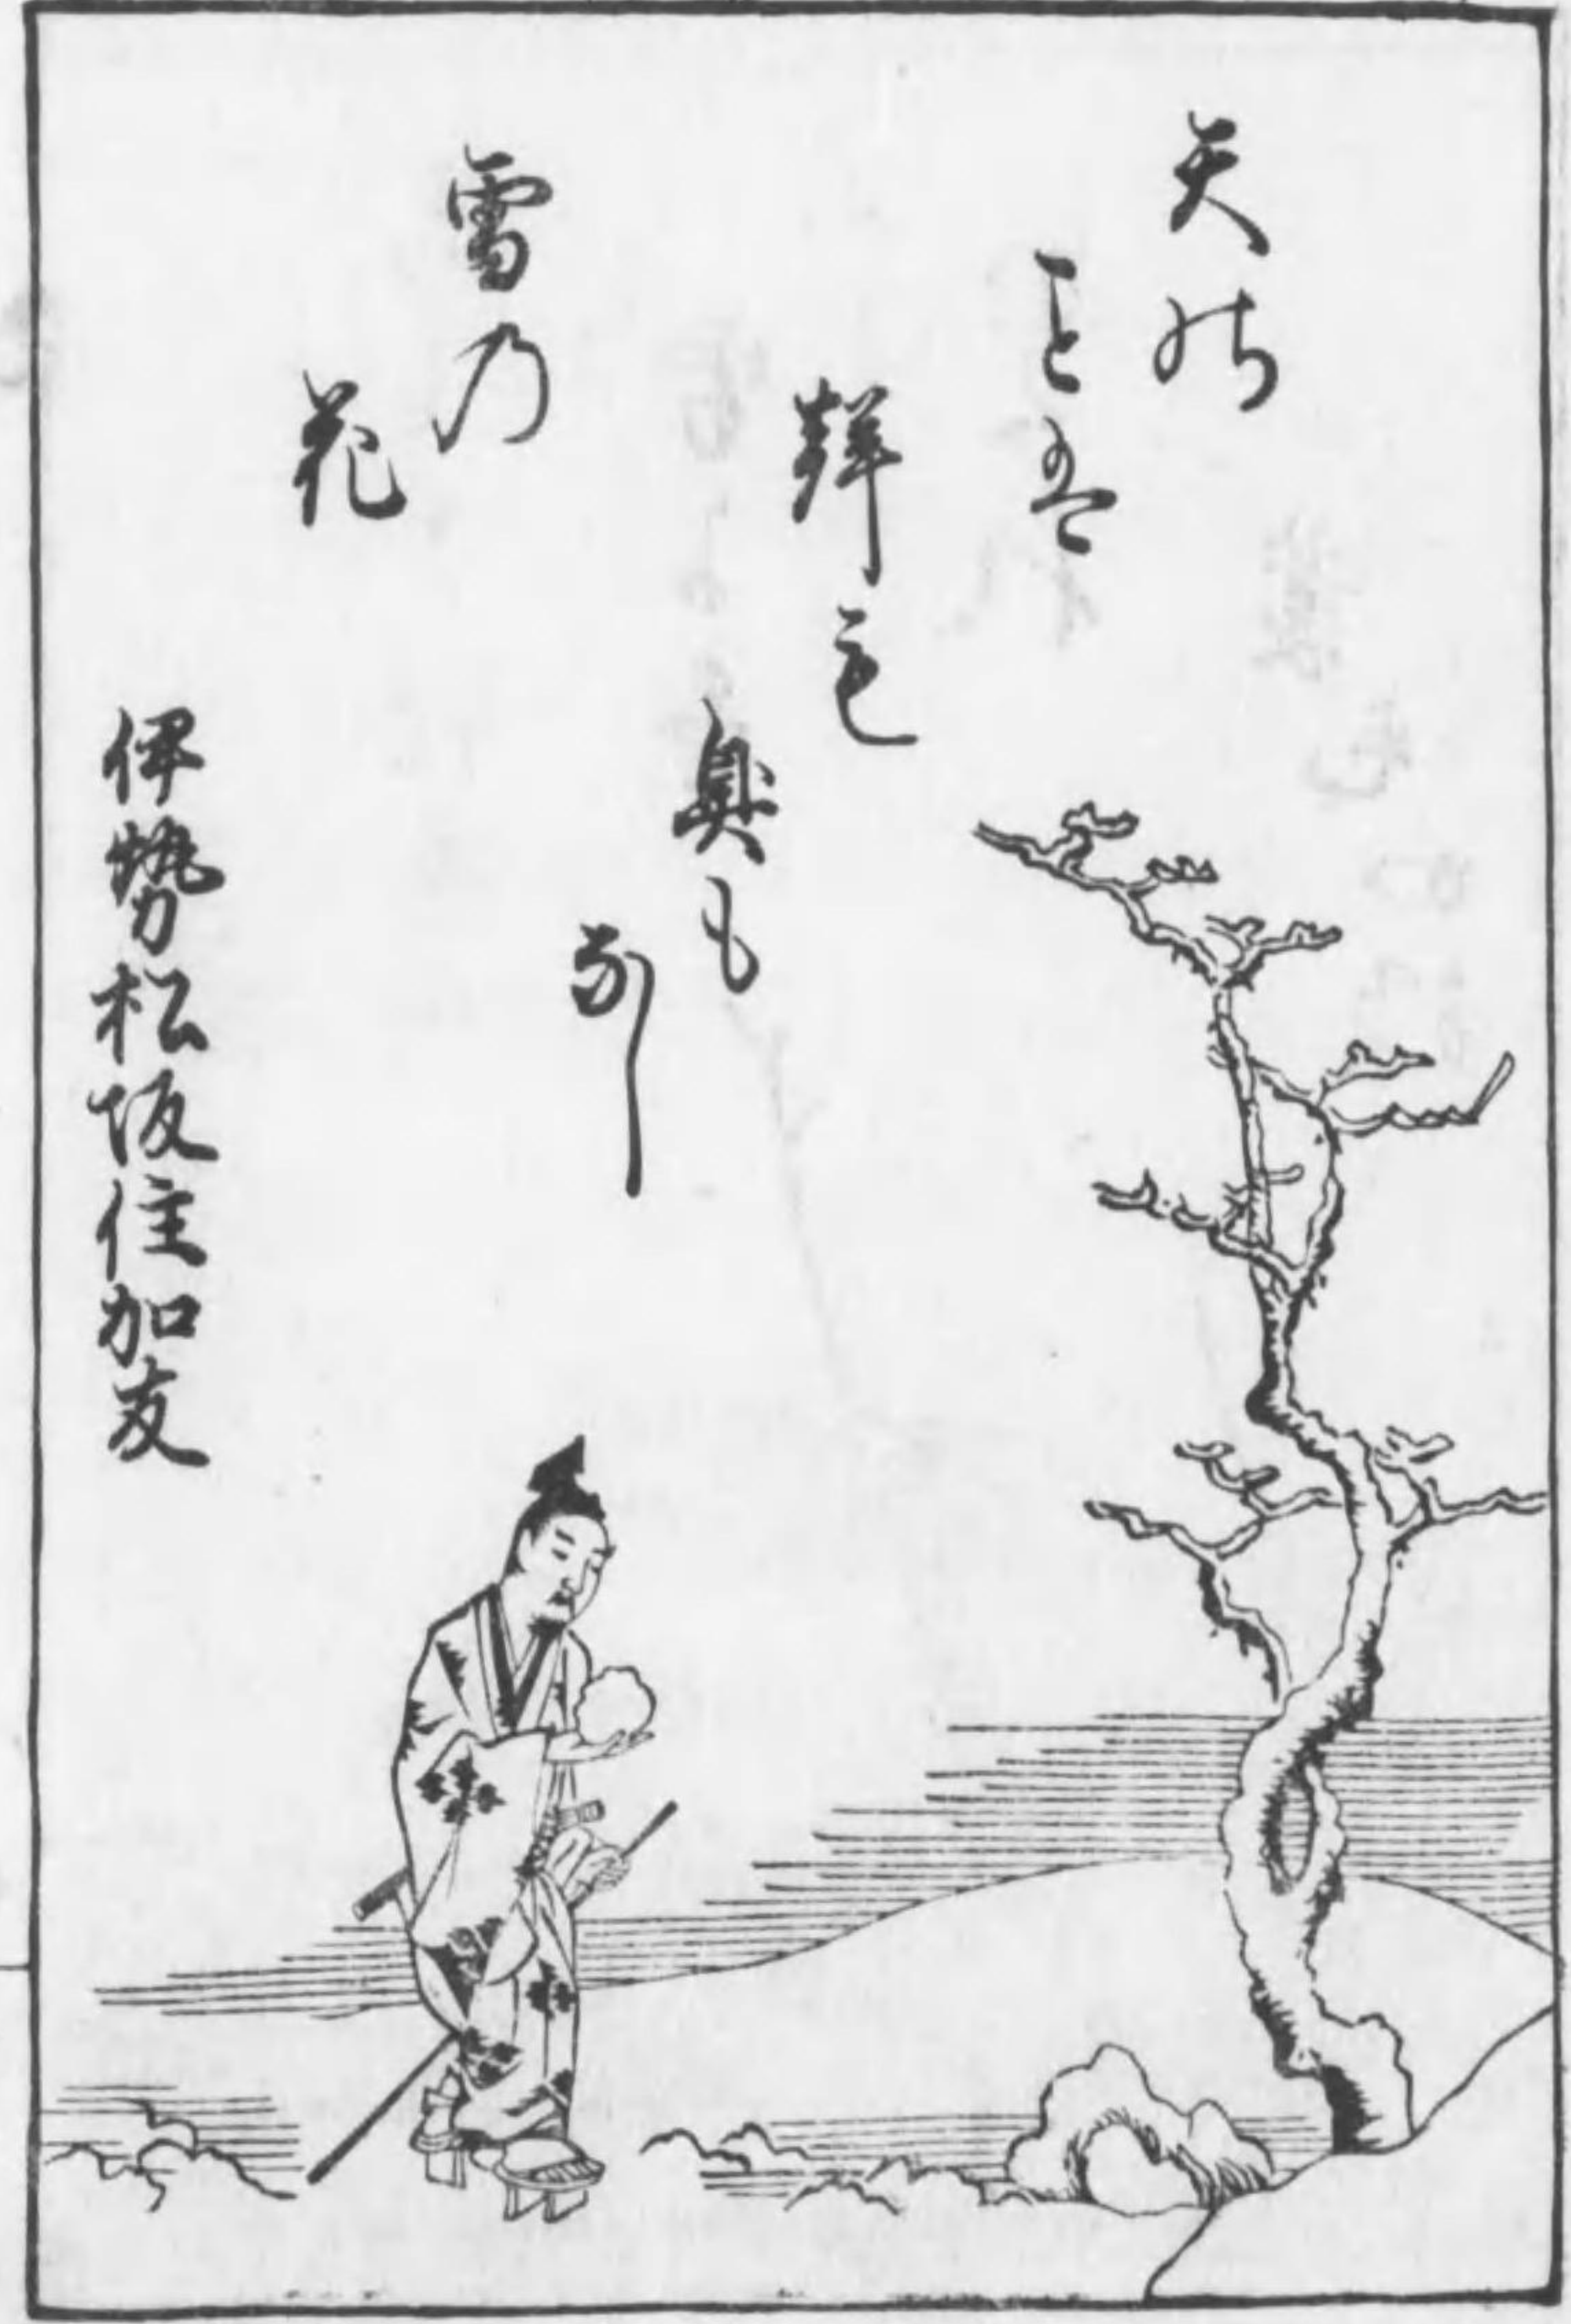 天の
ことは
聲も
臭も
なし
雪乃
花
伊勢松坂住加友